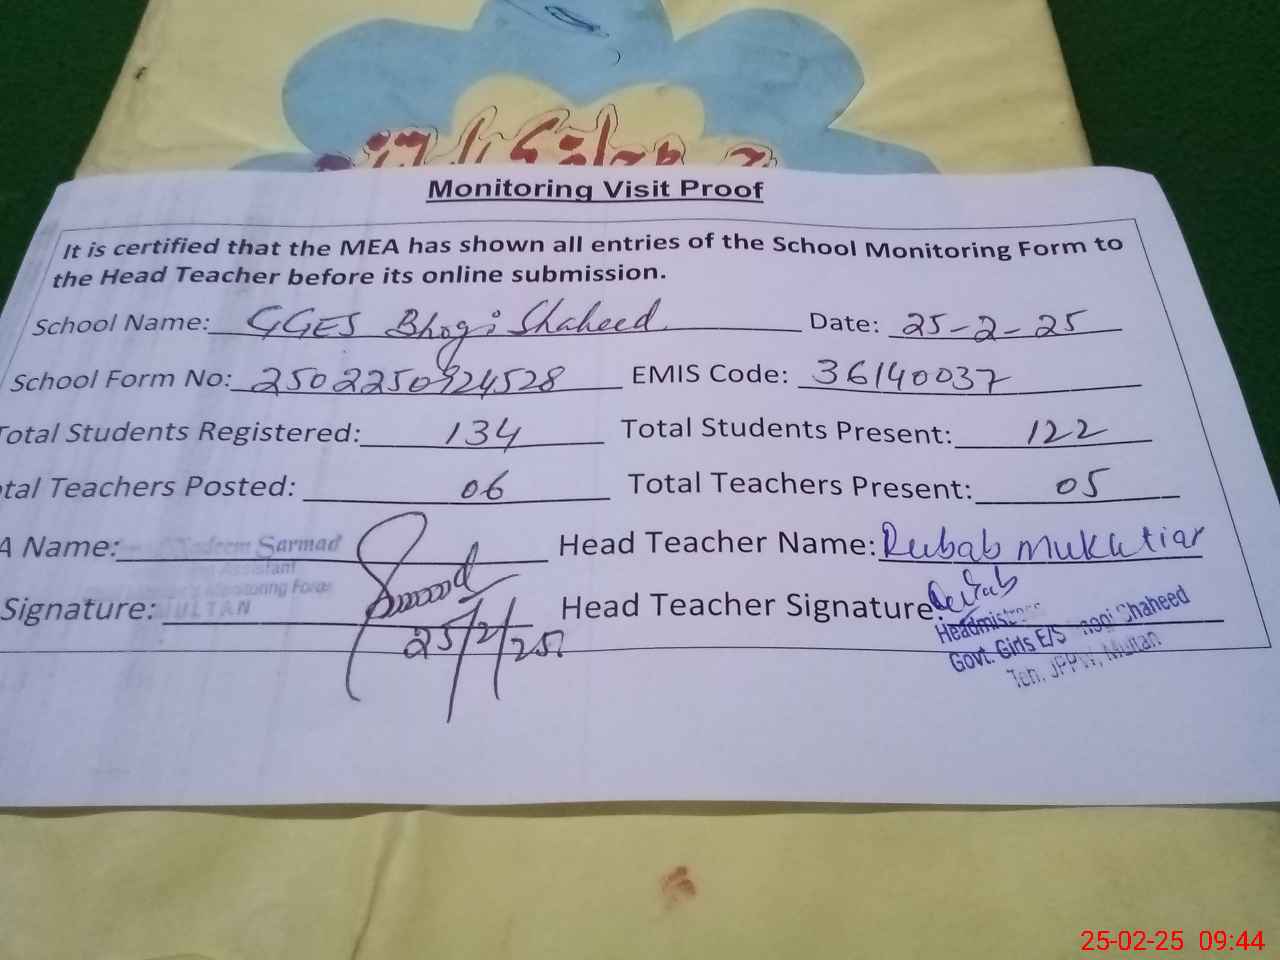 Monitoring Visit Proof
It is certified that the MEA has shown all entries of the School Monitoring Form to
the Head Teacher before its online submission.
School Name: GGES Bhogi Shaheed Date: 25-2-25
School Form No: 2502250924528 EMIS Code: 36140037
Total Students Registered: 134 Total Students Present: 122
tal Teachers Posted: 06 Total Teachers Present: 05
A Name: Sarmad Head Teacher Name: Rubab Mukhtiar
Assistant
Monitoring Force
Signature: MULTAN Head Teacher Signature:
25/2/25
Headmistress
Govt. Girls E/S Bhogi Shaheed
Teh. JPPW, Multan
25-02-25 09:44